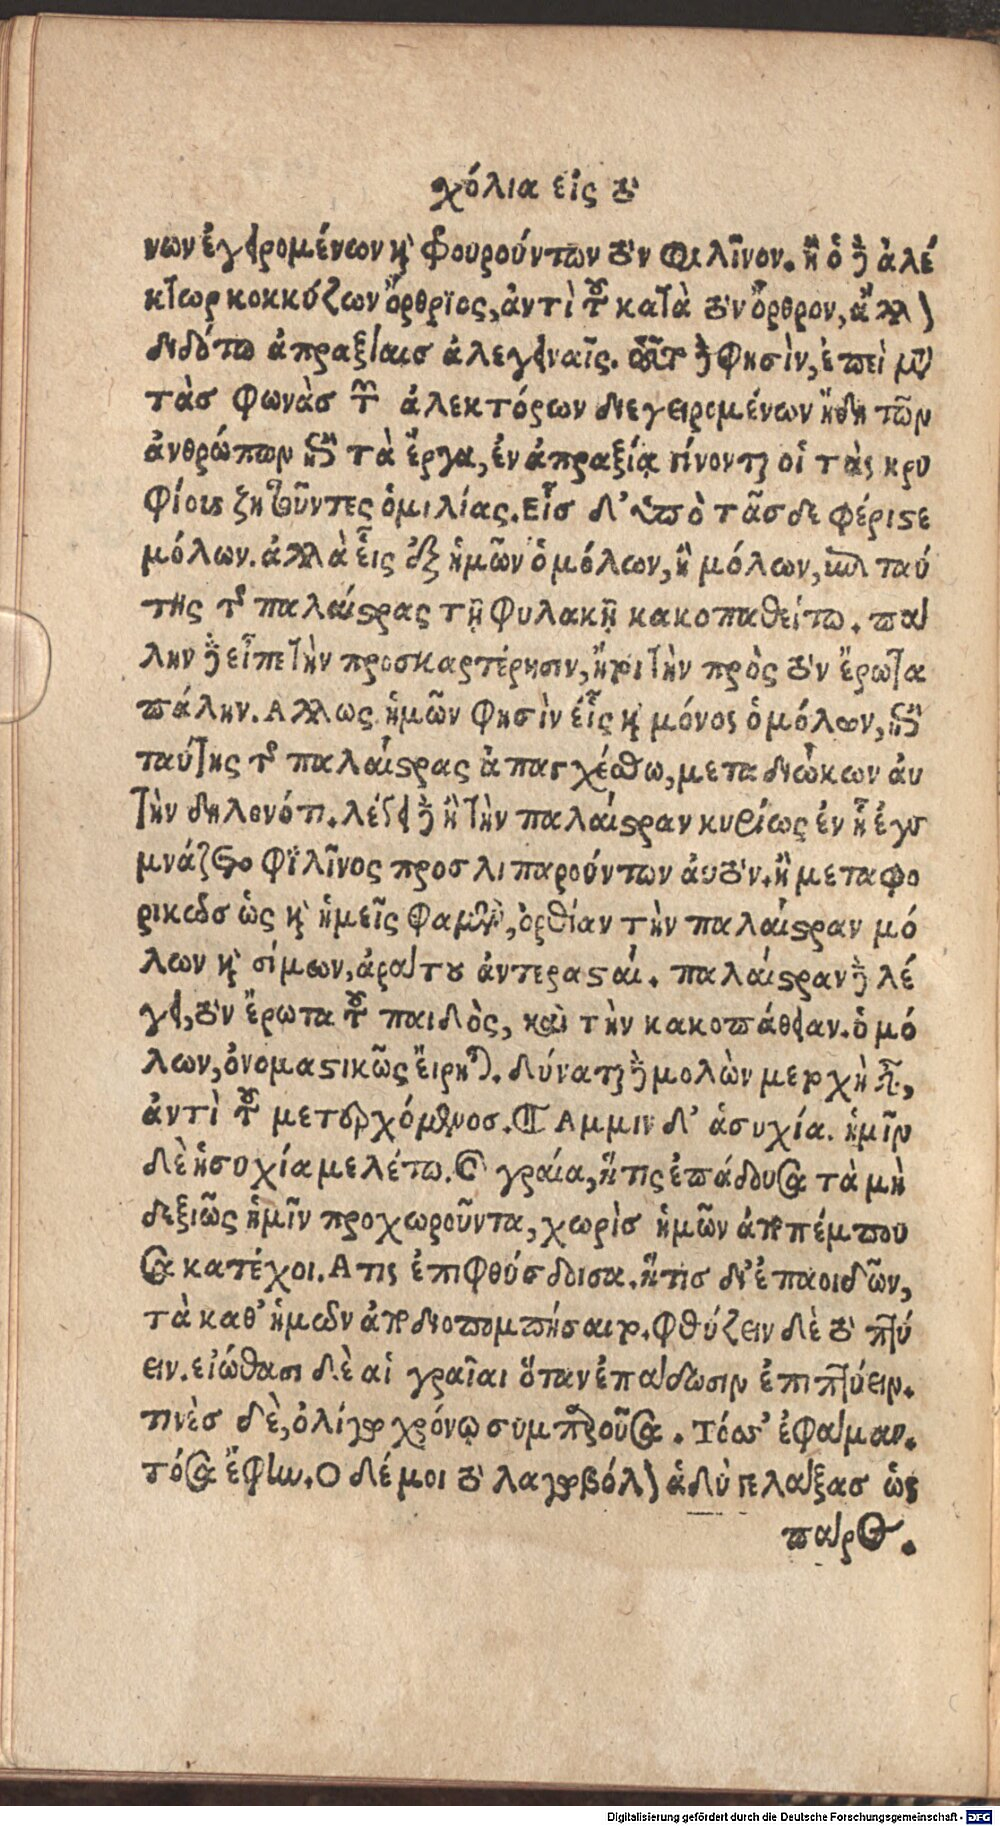 χόλια εἰς τὸ
νων ἐγειρομένων καὶ φρουρούντων τὸν Φιλῖνον. ἢ ὁ δὲ ἀλέ
κτωρ κοκκύζων ὄρθριος, ἀντὶ τοῦ κατὰ τὸν ὄρθρον, ἄλλον
διδότω ἀπραξίαισ ἀλεγειναῖς. τοῦτο δὲ φησὶν, ἐπεὶ μετὰ
τὰσ φωνὰσ τῶν ἀλεκτόρων διεγειρομένων ἤδη τῶν
ἀνθρώπων ἐπὶ τὰ ἔργα, ἐν ἀπραξίᾳ γίνονται οἱ τὰς κρυ
φίους ζητοῦντες ὁμιλίας. Εἷσ δ' ὑπὸ τᾶσδε φέριστε
μόλων. ἀλλὰ εἷς ἐξ ἡμῶν ὁ μόλων, ἢ μόλων, ἐπὶ ταύ
της τῆς παλαίστρας τῇ φυλακῇ κακοπαθείτω. πά
λην δὲ εἶπε τὴν προσκαρτέρησιν, ἤγουν τὴν πρὸς τὸν ἔρωτα
πάλην. Αλλως. ἡμῶν φησὶν εἷς καὶ μόνος ὁ μόλων, ἐπὶ
ταύτης τῆς παλαίστρας ἀπαγχέσθω, μεταδιώκων αὐ
τὴν δηλονότι. λέγει δὲ ἢ τὴν παλαίστραν κυρίως ἐν ᾗ ἐγυ
μνάζετο Φιλῖνος προσλιπαρούντων αὐτὸν. ἢ μεταφο
ρικῶσ ὡς καὶ ἡμεῖς φαμὲν, ὀρθίαν τὴν παλαίστραν μό
λων καὶ σίμων, ἀράτου ἀντερασταί. παλαίστραν δὲ λέ
γει, τὸν ἔρωτα τοῦ παιδὸς, καὶ τὴν κακοπάθειαν. ὁ μό
λων, ὀνομαστικῶς εἴρηται. δύναται δὲ μολὼν μετοχὴ εἶναι,
ἀντὶ τοῦ μετερχόμενοσ. ¶ Αμμιν δ' ἁσυχία. ἡμῖν
δὲ ἡσυχία μελέτω. καὶ γραία, ἥτις ἐπάδουσα τὰ μὴ
δεξιῶς ἡμῖν προχωροῦντα, χωρὶσ ἡμῶν ἀποπέμπου
σα κατέχοι. Ατις ἐπιφθύσδοισα. ἥτισ δι' ἐπαοιδῶν,
τὰ καθ' ἡμῶν ἀποδιοπομπήσαιτο. Φθύζειν δὲ τὸ πτύ
ειν. εἰώθασι δὲ αἱ γραῖαι ὅταν ἐπάδωσιν ἐπιπτύειν.
τινὲσ δὲ, ὀλίγῳ χρόνῳ συμπλέουσα. Τόσσ' ἐφάμαν.
τόσα ἔφην. Ο δέ μοι τὸ λαγωβόλον ἁδὺ γελάξασ ὡς
πάρος.